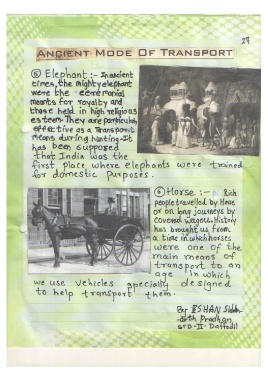 27
ANCIENT MODE OF TRANSPORT
⑤ Elephant :- In ancient
times, the mighty elephant
were the ceremonial
means for royalty and
those held in high religious
esteem. They are particularly
effective as a Transport
means during hunting. It
has been supposed
that India was the
first place where elephants were trained
for domestic purposes.
⑥ Horse :- Rich
people travelled by Horse
or on long journeys by
covered wagon. History
has brought us from
a time in which horses
were one of the
main means of
transport to an
age in which
we use vehicles specially designed
to help transport them.
By ESHAN
Pradhan
STD-II Daffodil